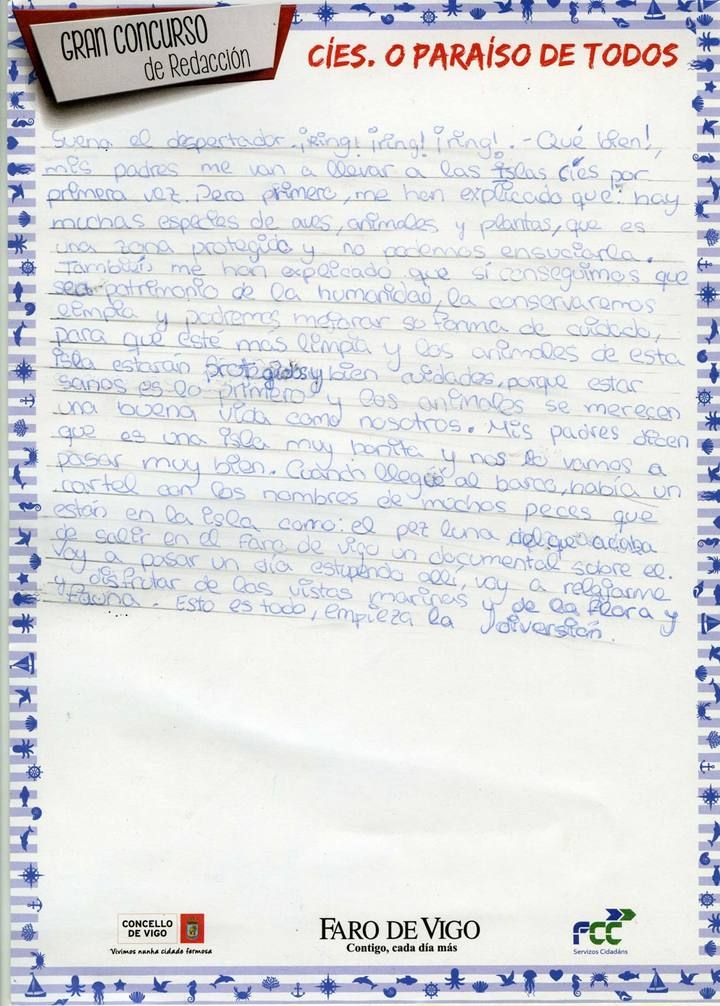 GRAN CONCURSO
de Redacción
CÍES. O PARAÍSO DE TODOS
Suena el despertador. ¡Ring! ¡ring! ¡ring!. - Qué bien!,
mis padres me van a llevar a las Islas Cíes por
primera vez. Pero primero, me han explicado que: hay
muchas especies de aves, animales y plantas, que es
una zona protegida y no podemos ensuciarla.
También me han explicado que si conseguimos que
sea patrimonio de la humanidad, la conservaremos
limpia y podremos mejorar su forma de cuidado,
para que esté mas limpia y los animales de esta
isla estarán protegidos y bien cuidados, porque estar
sanos es lo primero y los animales se merecen
una buena vida como nosotros. Mis padres dicen
que es una isla muy bonita y nos lo vamos a
pasar muy bien. Cuando llegué al barco, había un
cartel con los nombres de muchos peces que
están en la isla como: el pez luna del que acaba
de salir en el Faro de Vigo un documental sobre el.
Voy a pasar un día estupendo allí, voy a relajarme
y disfrutar de las vistas marinas y de la flora y
fauna. Esto es todo, empieza la diversión.
CONCELLO
DE VIGO
Vivimos nunha cidade fermosa
FARO DE VIGO
Contigo, cada día más
FCC
Servizos Cidadáns